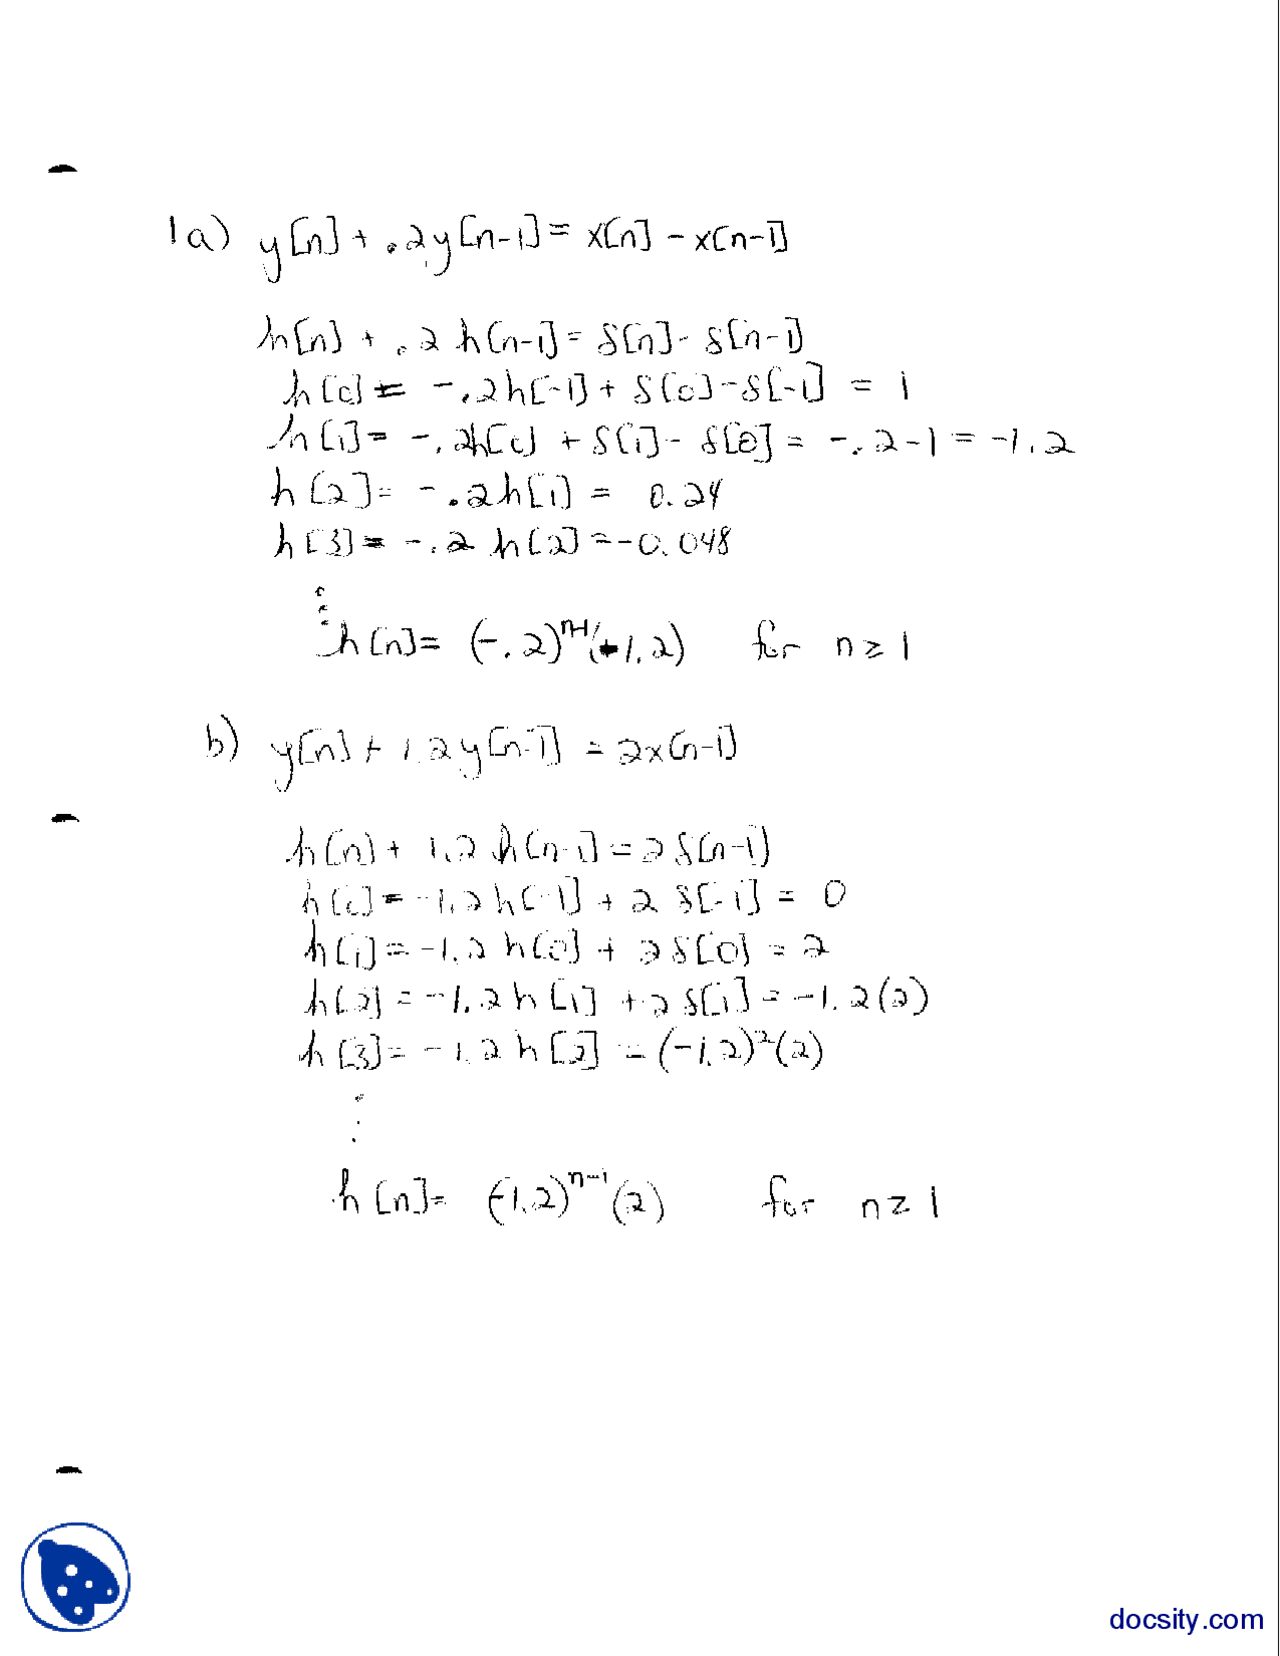 1a) y[n] + .2y[n-1] = x[n] - x[n-1]
h[n] + .2 h[n-1] = δ[n] - δ[n-1]
h[0] = -.2h[-1] + δ[0] - δ[-1] = 1
h[1] = -.2h[0] + δ[1] - δ[0] = -.2-1 = -1.2
h[2] = -.2h[1] = 0.24
h[3] = -.2 h[2] = -0.048
⋮
h[n] = (-.2)ⁿ⁻¹(-1.2) for n ≥ 1
b) y[n] + 1.2y[n-1] = 2x[n-1]
h[n] + 1.2 h[n-1] = 2δ[n-1]
h[0] = -1.2h[-1] + 2 δ[-1] = 0
h[1] = -1.2 h[0] + 2δ[0] = 2
h[2] = -1.2h[1] + 2 δ[1] = -1.2(2)
h[3] = -1.2 h[2] = (-1.2)²(2)
⋮
h[n] = (-1.2)ⁿ⁻¹(2) for n ≥ 1
docsity.com